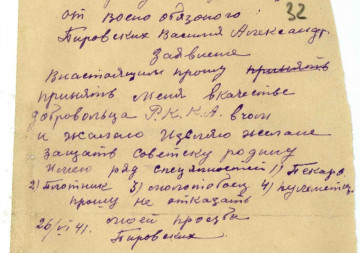 32
от воено обязоного
Пировских Василия Александр.
Заявление
Внастоящим прошу принять
принять меня вкачестве
добровольца Р.К.К.А в чом
и жалаю изевляю желане
защать советску родину
Имею ряд специяностей 1) Пекарь
2) Плотник 3) молотобоец 4) пулеметч.
прошу не отказать
26/VI 41. моей прозьба
Пировских.